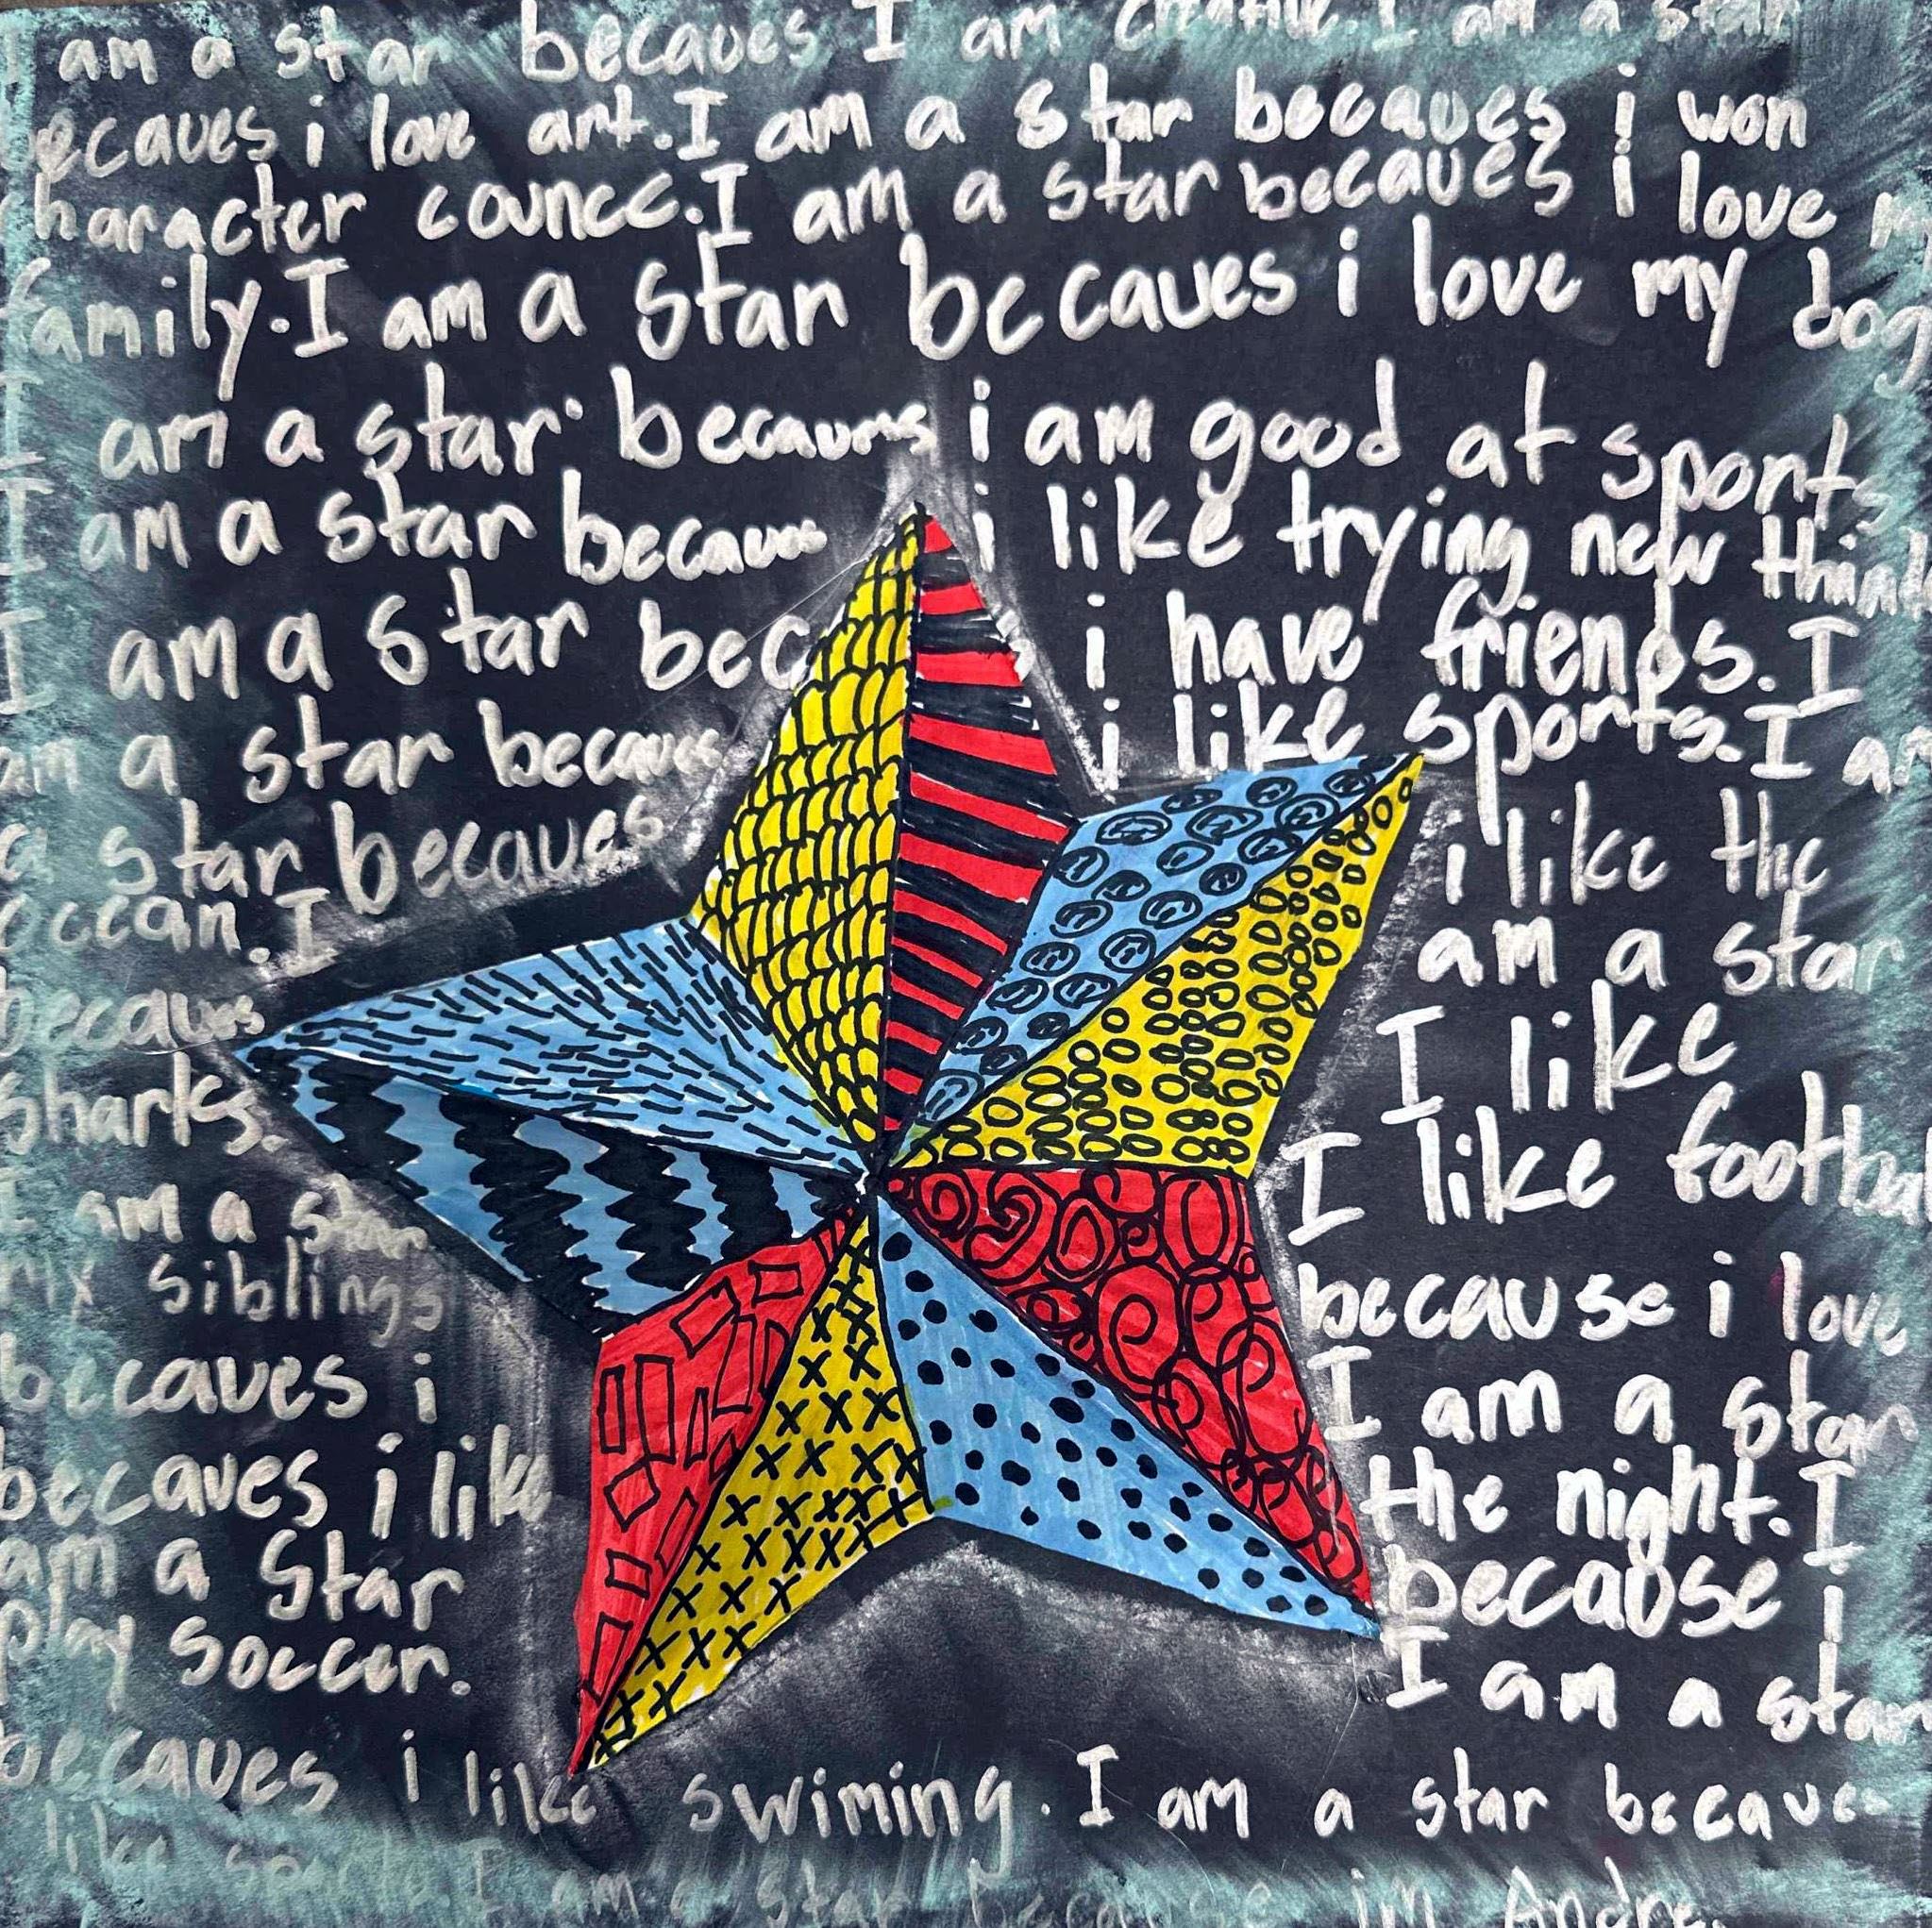 am a star becaues I am creative. I am a star
ecaues i love art. I am a star becaues i won
haracter councc. I am a star becaues i love m
family. I am a star becaues i love my dog
I am a star becaues i am good at sports
I am a star becaues i like trying new think
I am a star bec i have friends. I
am a star becaues i like sports. I am
a star becaues i like the
occan. I am a star
becaues I like
sharks. I like footba
I am a star because i love
siblings I am a star
becaues i the night. I
becaues i like because i
am a star I am a star
play soccer.
becaues i like swiming. I am a star becaues
like I am a star because im Andre.